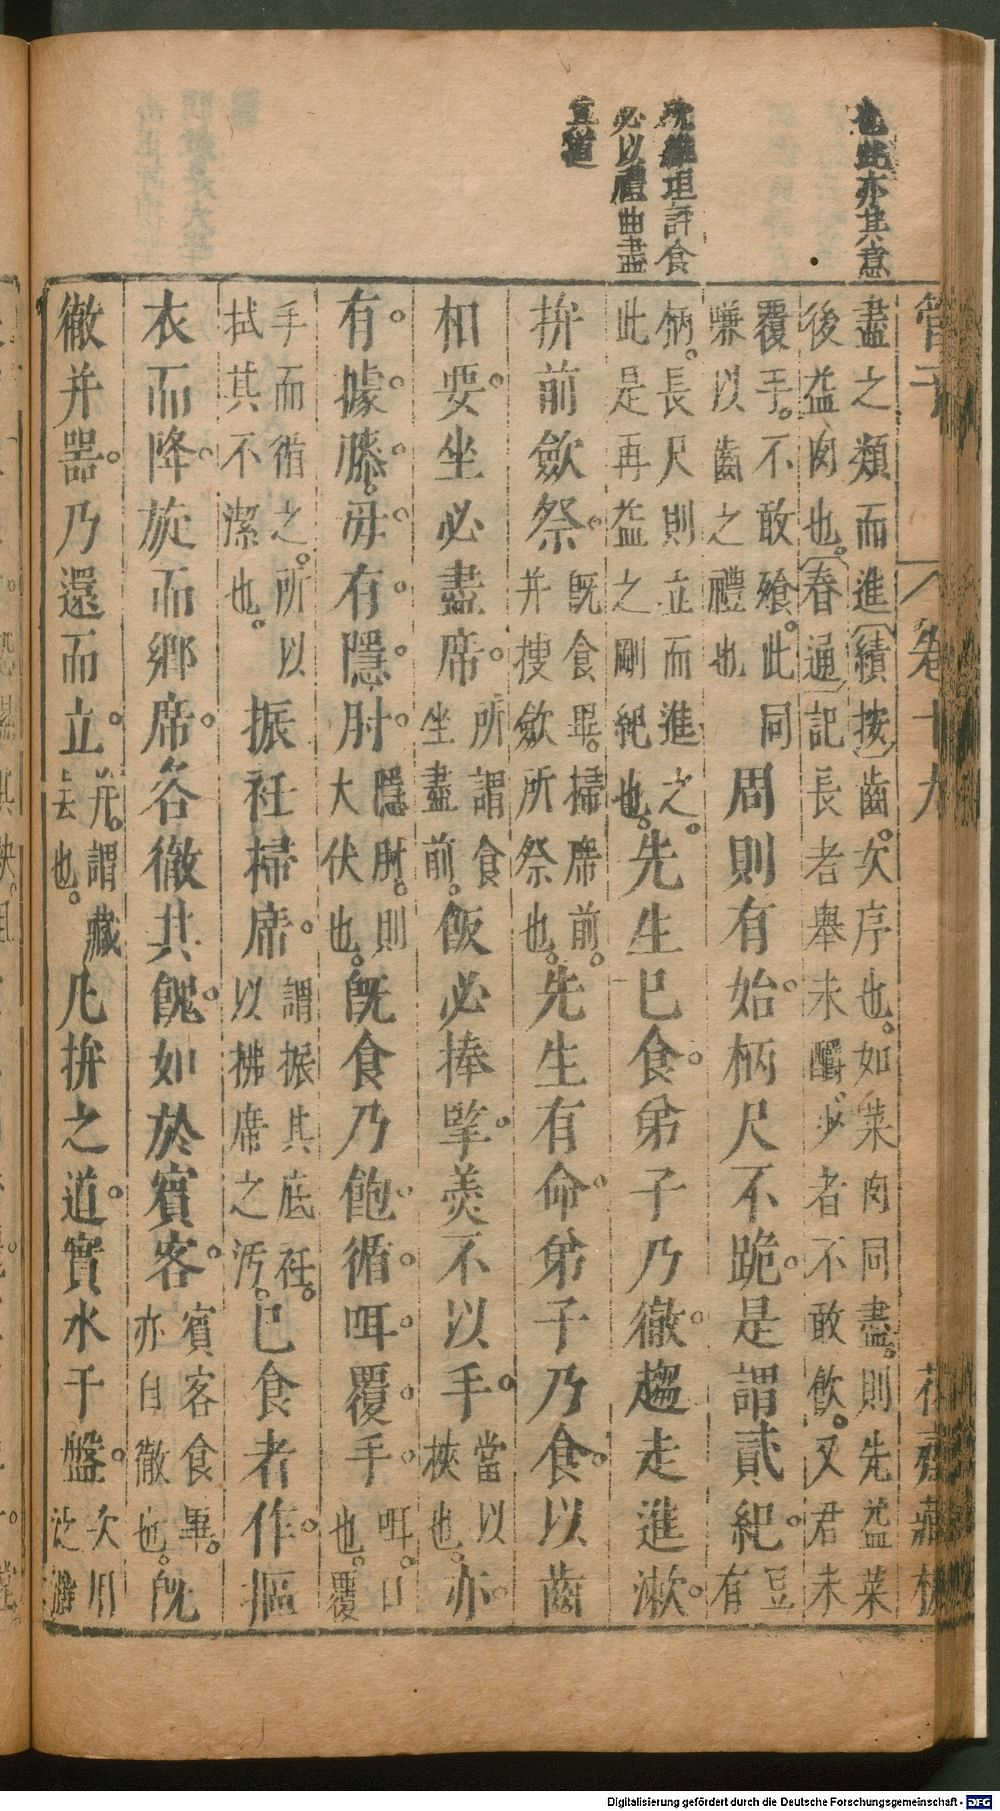 也此亦其意
沈維垣評食
必以禮曲盡
其道
管子 卷十九 花齋藏板
盡之類而進〔續按〕齒次序也。如菜肉同盡。則先益菜
後益肉也。〔春通〕記長者舉未釂少者不敢飲。又君未
覆手。不敢飧。此同
嗛以齒之禮也
周則有始。柄尺不跪。是謂貳紀。
豆有
柄。長尺則立而進之。
此是再益之剛紀也。
先生已食。弟子乃徹。趨走進漱。
拚前歛祭。
既食畢。掃席前。
并搜歛所祭也。
先生有命。弟子乃食。以齒
相要。坐必盡席。
所謂食
坐盡前。
飯必捧擥。羹不以手。
當以
梜也。
亦
有。據膝。毋有隱肘。
隱肘。則
大伏也。
既食乃飽。循咡覆手。
咡。口
也。覆
手而循之。所以
拭其不潔也。
振衽掃席。
謂振其底衽。
以拂席之汚。
已食者作。摳
衣而降。旋而鄉席。各徹其餽。如於賓客。
賓客食畢。
亦自徹也。
既
徹并噐。乃還而立。
并。謂藏
去也。
凡拚之道。實水于盤。
次用
泛灑
Digitalisierung gefördert durch die Deutsche Forschungsgemeinschaft - DFG